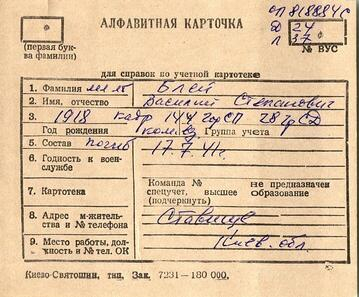 АЛФАВИТНАЯ КАРТОЧКА
оп 818884с
Д 24
Л 37
№ ВУС
(первая бук-
ва фамилии)
для справок по учетной картотеке
1. Фамилия мл лт Блей
2. Имя, отчество Василий Степанович
3. 1918 кадр 144 гсСП 28 гсСД
Год рождения ком. взв. Группа учета
5. Состав погиб 17.7.41г.
6. Годность к воен-
службе
7. Картотека
Команда № не предназначен
спецучет, высшее образование
(подчеркнуть)
8. Адрес м-житель-
ства и № телефона
Ставище
9. Место работы, дол-
жность и № тел. ОК
Киев. обл.
Киево-Святошин, тип, Зак. 7231—180 000.